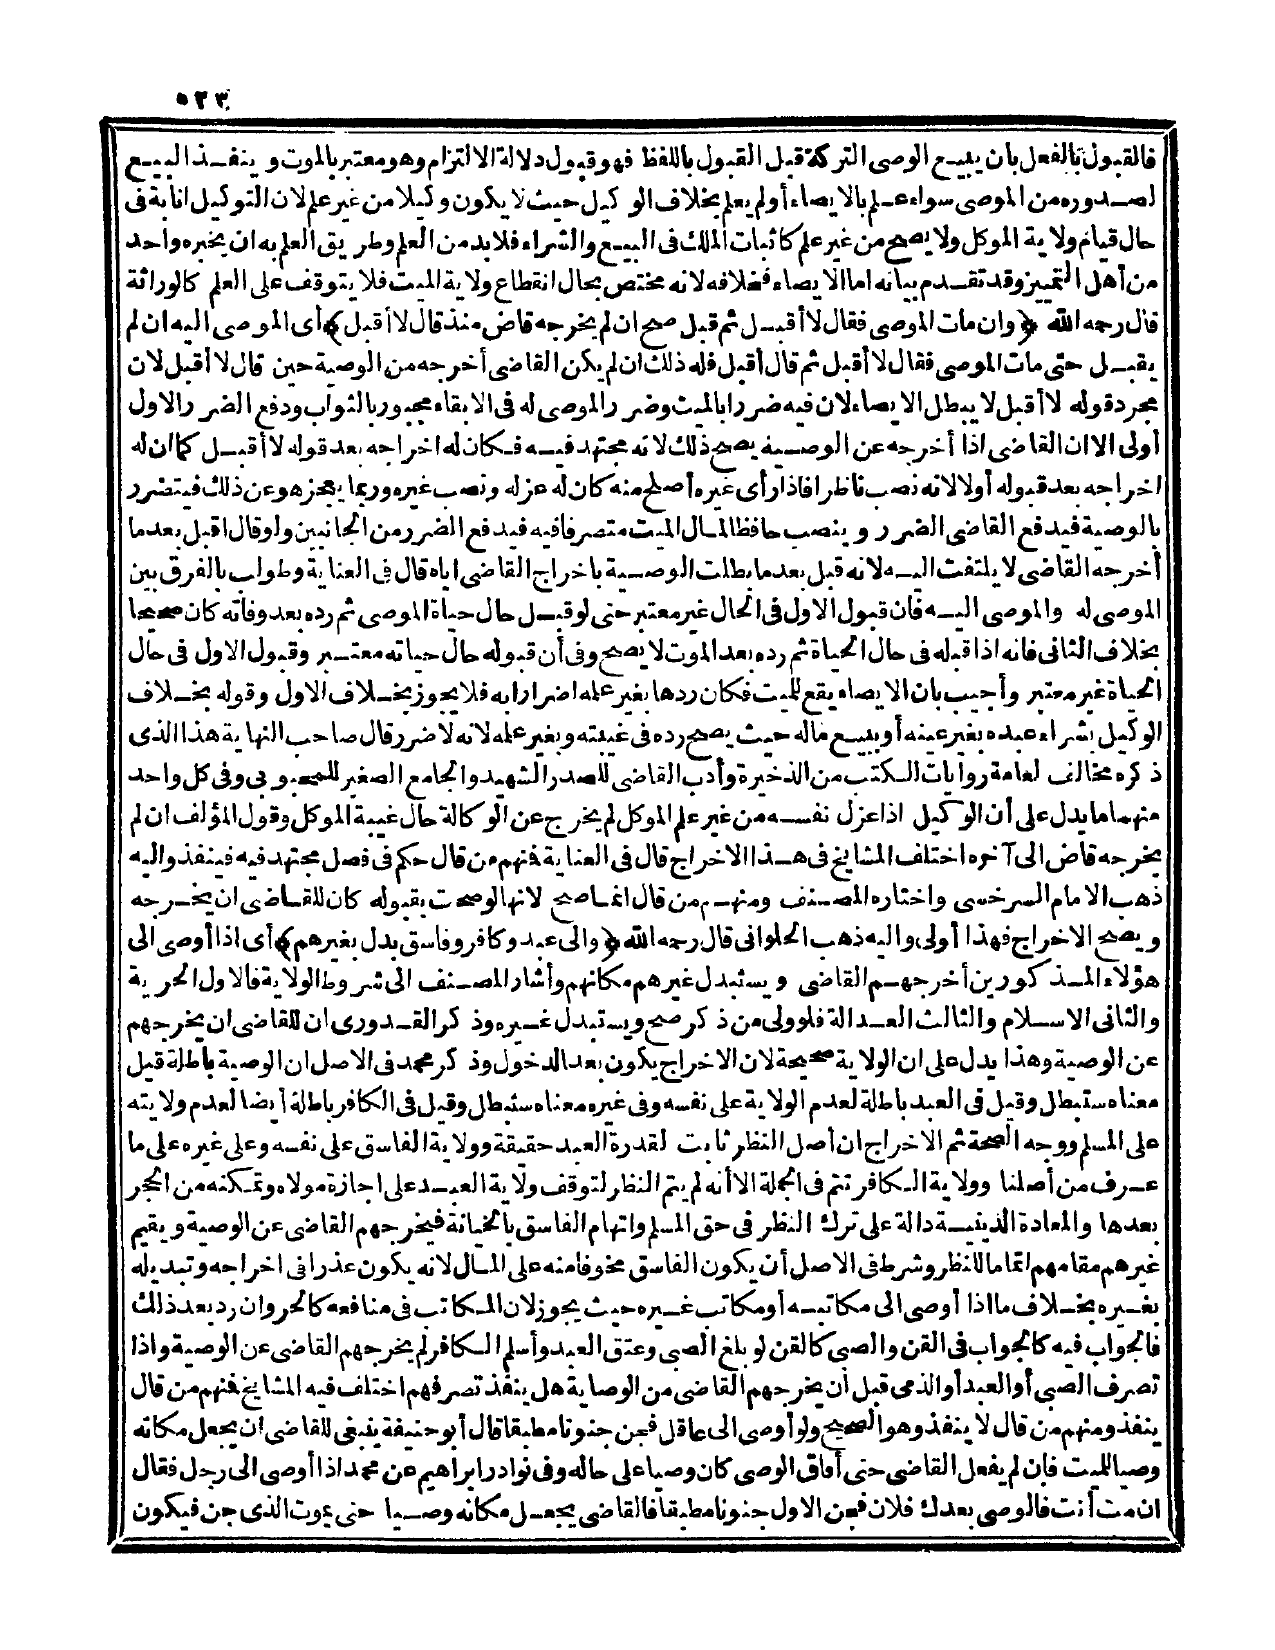 ٥٢٣
فالقبول بالفعل بان يبيع الوصى التركة قبل القبول باللفظ فهو قبول دلالة الالتزام وهو معتبر بالموت و ينفذ البيع
لصدوره من الموصى سواء علم بالايصاء أو لم يعلم بخلاف الوكيل حيث لا يكون وكيلا من غير علم لان التوكيل انابة فى
حال قيام ولاية الموكل ولا يصح من غير علم كاثبات الملك فى البيع والشراء فلا بد من العلم وطريق العلم به ان يخبره واحد
من أهل التمييز وقد تقدم بيانه اما الايصاء فخلافه لانه مختص بحال انقطاع ولاية الميت فلا يتوقف على العلم كالوراثة
قال رحمه الله ﴿وان مات الموصى فقال لا أقبل ثم قبل صح ان لم يخرجه قاض منذ قال لا أقبل﴾ أى الموصى اليه ان لم
يقبل حتى مات الموصى فقال لا أقبل ثم قال أقبل فله ذلك ان لم يكن القاضى أخرجه من الوصية حين قال لا أقبل لان
مجرد قوله لا أقبل لا يبطل الايصاء لان فيه ضررا بالميت وضرر الموصى له فى الابقاء مجبور بالثواب ودفع الضرر الاول
أولى الا ان القاضى اذا أخرجه عن الوصية يصح ذلك لانه مجتهد فيه فكان له اخراجه بعد قوله لا أقبل كما ان له
اخراجه بعد قبوله أولا لانه نصب ناظرا فاذا رأى غيره أصلح منه كان له عزله ونصب غيره وربما يعجز هو عن ذلك فيتضرر
بالوصية فيدفع القاضى الضرر و ينصب حافظا لمال الميت متصرفا فيه فيدفع الضرر من الجانبين ولو قال اقبل بعد ما
أخرجه القاضى لا يلتفت اليه لانه قبل بعد ما بطلت الوصية باخراج القاضى اياه قال فى العناية وطولب بالفرق بين
الموصى له والموصى اليه فان قبول الاول فى الحال غير معتبر حتى لو قبل حال حياة الموصى ثم رده بعد وفاته كان صحيحا
بخلاف الثانى فانه اذا قبله فى حال الحياة ثم رده بعد الموت لا يصح وفى أن قبوله حال حياته معتبر وقبول الاول فى حال
الحياة غير معتبر وأجيب بان الايصاء يقع للميت فكان ردها بغير علمه اضرارا به فلا يجوز بخلاف الاول وقوله بخلاف
الوكيل بشراء عبده بغير عينه أو ببيع ماله حيث يصح رده فى غيبته وبغير علمه لانه لا ضرر قال صاحب النهاية هذا الذى
ذكره مخالف لعامة روايات الكتب من الذخيرة وأدب القاضى للصدر الشهيد والجامع الصغير للمحبوبى وفى كل واحد
منهما ما يدل على أن الوكيل اذا عزل نفسه من غير علم الموكل لم يخرج عن الوكالة حال غيبة الموكل وقول المؤلف ان لم
يخرجه قاض الى آخره اختلف المشايخ فى هذا الاخراج قال فى العناية فمنهم من قال حكم فى فصل مجتهد فيه فينفذ واليه
ذهب الامام السرخسى واختاره المصنف ومنهم من قال انما صح لانها لو صحت بقبوله كان للقاضى ان يخرجه
ويصح الاخراج فهذا أولى واليه ذهب الحلوانى قال رحمه الله ﴿والى عبد وكافر وفاسق بدل بغيرهم﴾ أى اذا أوصى الى
هؤلاء المذكورين أخرجهم القاضى و يستبدل غيرهم مكانهم وأشار المصنف الى شروط الولاية فالاول الحرية
والثانى الاسلام والثالث العدالة فلو ولى من ذكر صح ويستبدل غيره وذكر القدورى ان للقاضى ان يخرجهم
عن الوصية وهذا يدل على ان الولاية صحيحة لان الاخراج يكون بعد الدخول وذكر محمد فى الاصل ان الوصية باطلة قيل
معناه ستبطل وقيل فى العبد باطلة لعدم الولاية على نفسه وفى غيره معناه ستبطل وقيل فى الكافر باطلة أيضا لعدم ولايته
على المسلم ووجه الصحة ثم الاخراج ان أصل النظر ثابت لقدرة العبد حقيقة وولاية الفاسق على نفسه وعلى غيره على ما
عرف من أصلنا وولاية الكافر تتم فى الجملة الا أنه لم يتم النظر لتوقف ولاية العبد على اجازة مولاه وتمكنه من الحجر
بعدها والمعاداة الدينية دالة على ترك النظر فى حق المسلم واتهام الفاسق بالخيانة فيخرجهم القاضى عن الوصية و يقيم
غيرهم مقامهم اتماما للنظر وشرط فى الاصل أن يكون الفاسق مخوفا منه على المال لانه يكون عذرا فى اخراجه وتبديله
بغيره بخلاف ما اذا أوصى الى مكاتبه أو مكاتب غيره حيث يجوز لان المكاتب فى منافعه كالحر وان رد بعد ذلك
فالجواب فيه كالجواب فى القن والصبى كالقن لو بلغ الصبى وعتق العبد وأسلم الكافر لم يخرجهم القاضى عن الوصية واذا
تصرف الصبى أو العبد أو الذمى قبل أن يخرجهم القاضى من الوصاية هل ينفذ تصرفهم اختلف فيه المشايخ فمنهم من قال
ينفذ ومنهم من قال لا ينفذ وهو الصحيح ولو أوصى الى عاقل فجن جنونا مطبقا قال أبو حنيفة ينبغى للقاضى ان يجعل مكانه
وصيا للميت فان لم يفعل القاضى حتى أفاق الوصى كان وصيا على حاله وفى نوادر ابراهيم عن محمد اذا أوصى الى رجل فقال
ان مت أنت فالوصى بعدك فلان فجن الاول جنونا مطبقا فالقاضى يجعل مكانه وصيا حتى يموت الذى جن فيكون